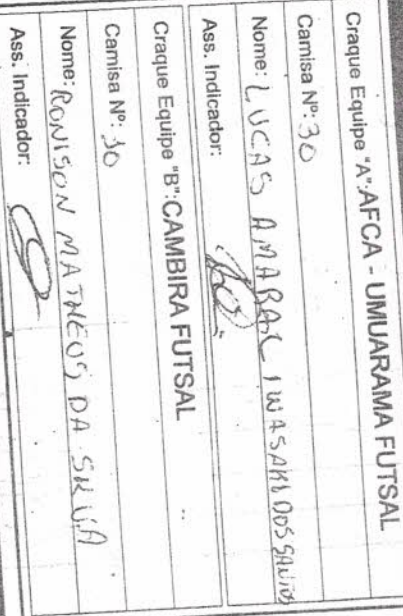 Craque Equipe "A":AFCA - UMUARAMA FUTSAL
Camisa Nº: 30
Nome: LUCAS AMARAL IWASAKI DOS SANTOS
Ass. Indicador:
Craque Equipe "B":CAMBIRA FUTSAL
Camisa Nº: 30
Nome: RONISON MATHEUS DA SILVA
Ass. Indicador: